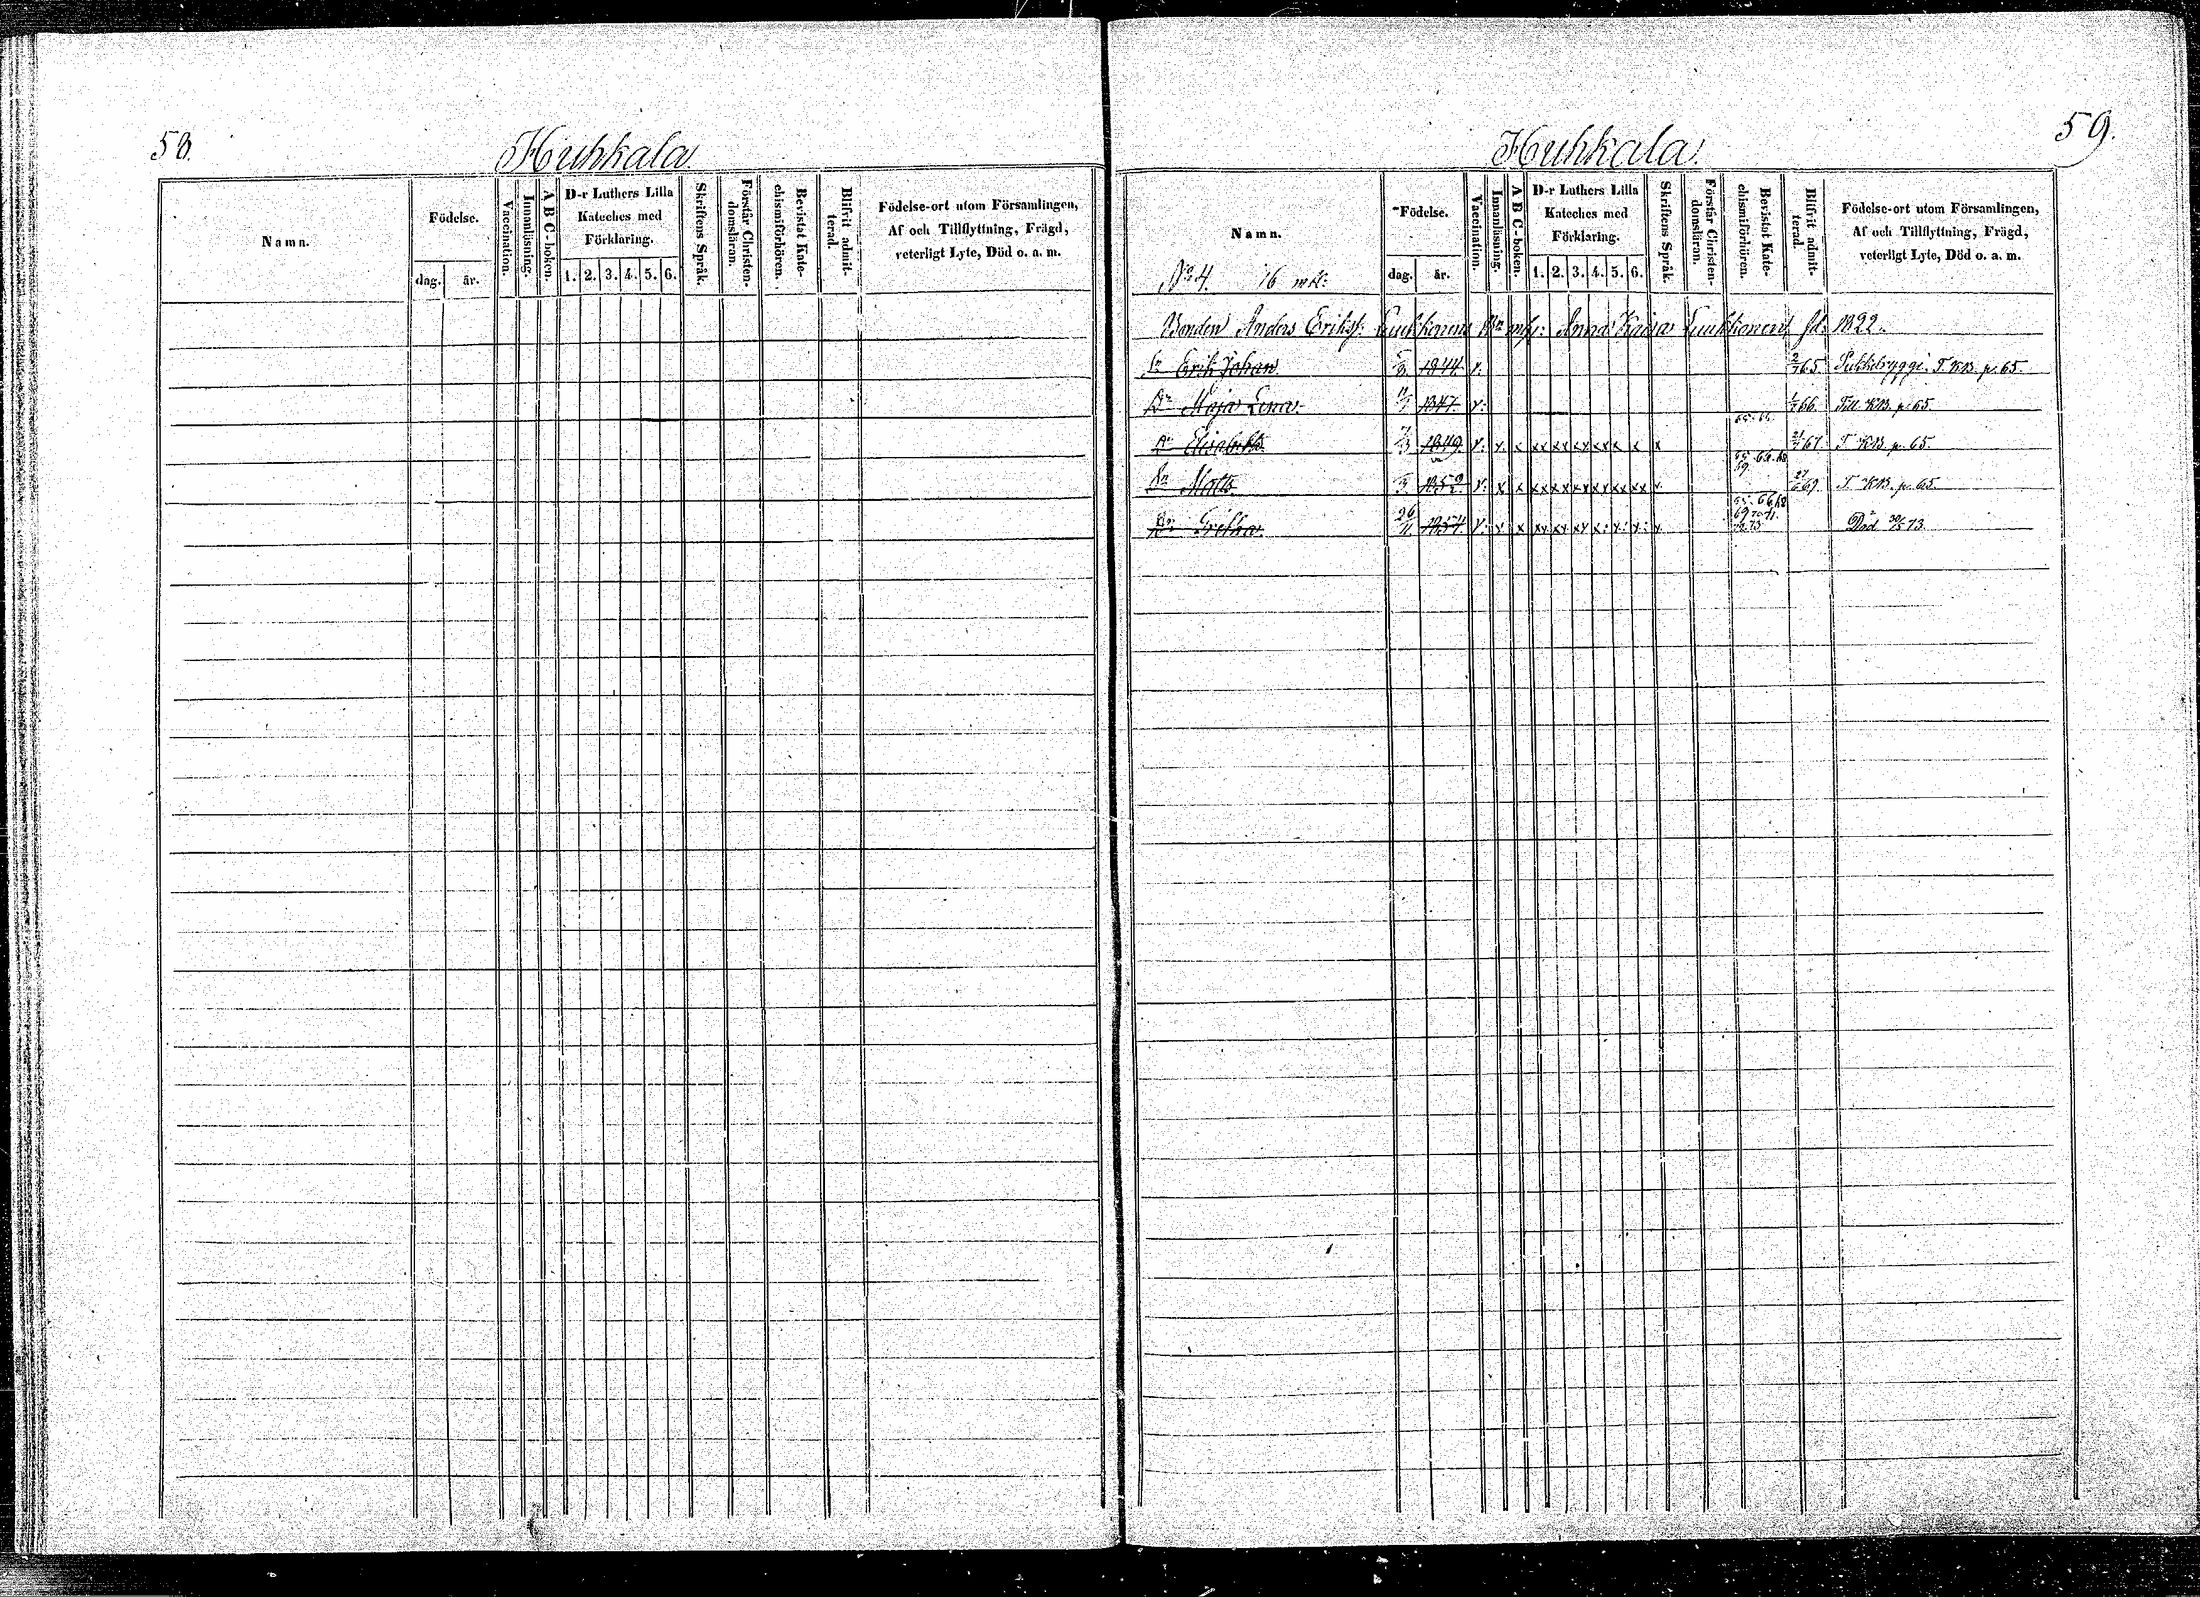 58.
Huhkala
Namn.
Födelse.
dag. år.
Vaccination.
Innanläsning.
A B C-boken.
D-r Luthers Lilla
Kateches med
Förklaring.
1. 2. 3. 4. 5. 6.
Skriftens Språk.
Förstår Christen-
domsläran.
Bevistat Kate-
chismiförhören.
Blifvit admit-
terad.
Födelse-ort utom Församlingen,
Af och Tillflyttning, Frägd,
veterligt Lyte, Död o. a. m.
59.
Huhkala.
Namn.
No 4. 16 mtl:
Födelse.
dag. år.
Vaccination.
Innanläsning.
A B C-boken.
D-r Luthers Lilla
Kateches med
Förklaring.
1. 2. 3. 4. 5. 6.
Skriftens Språk.
Förstår Christen-
domsläran.
Bevistat Kate-
chismiförhören.
Blifvit admit-
terad.
Födelse-ort utom Församlingen,
Af och Tillflyttning, Frägd,
veterligt Lyte, Död o. a. m.
Bonden Anders Erikss: Anna Kaisa fd: 1822.
Sn Erik Johan 1844. v. 65. T. KB. p. 65.
Dr Maja Lena 1847 v: 66. Till KB. p. 65.
Dr Elisabeth 1849. v: x x xx xx xx xx x x x 67 T. KB. p. 65.
Sn Matts v: x x xx xx xx xx xx xx x 27/6 69. T. KB. p. 65.
Dr Gretha 26/11 1854. v: x x xx xx xx x: x: x: x Död 30/5 73.